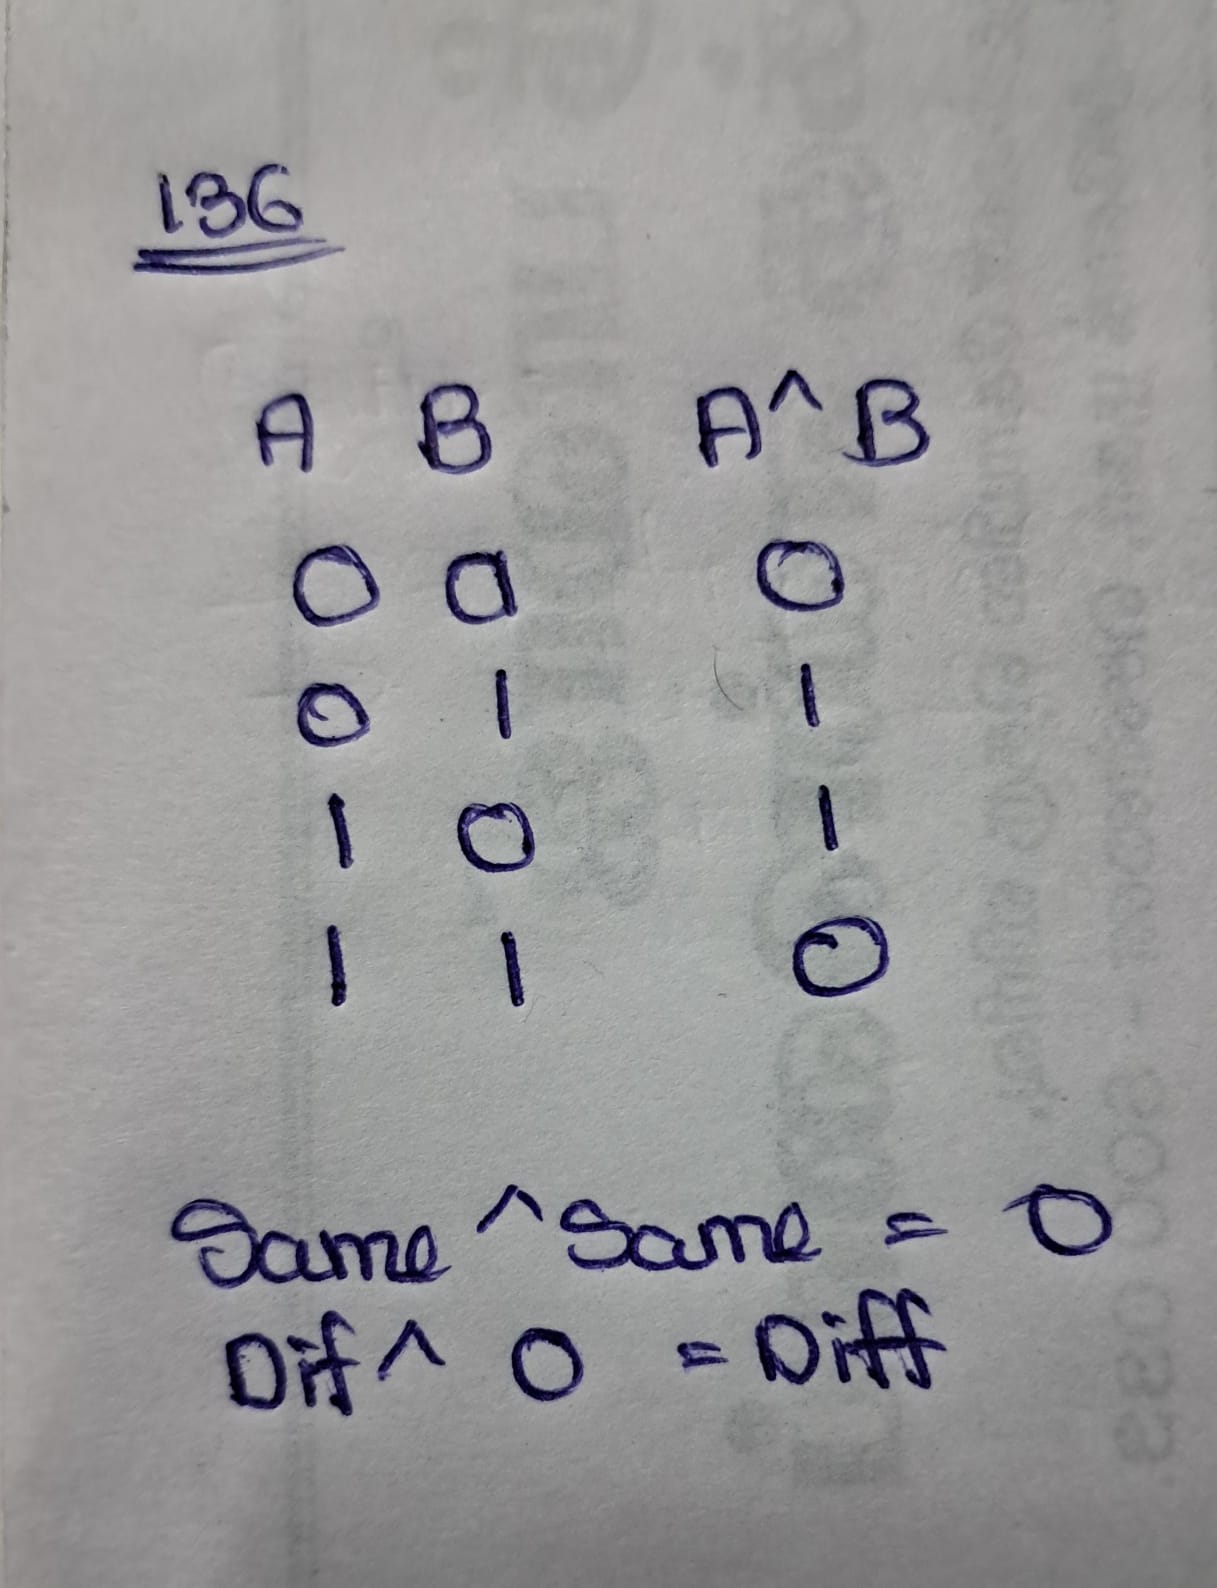 136
A B A^B
0 0 0
0 1 1
1 0 1
1 1 0
Same ^ Same = 0
Dif ^ 0 = Diff